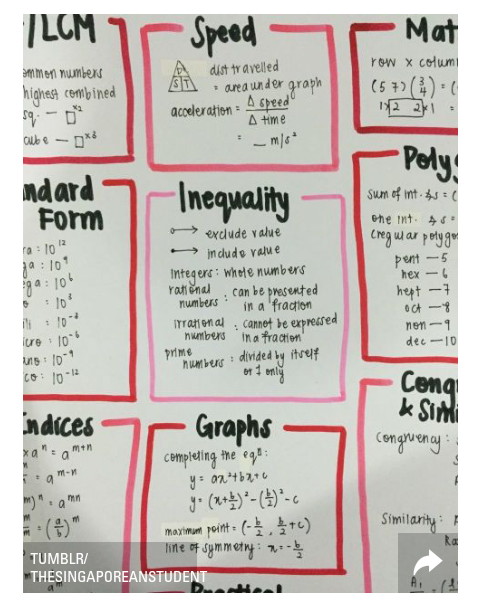 /LCM
ommon numbers
highest combined
sq. — □ˣ²
cube — □ˣ³
Speed
D
S T
dist travelled
= area under graph
acceleration = Δ speed
Δ time
= __ m/s²
Mat
row x colum
(5 7)(3
4) = (
1x2 2x1 =
ndard
Form
ra : 10¹²
ga : 10⁹
ega : 10⁶
o : 10³
lli : 10⁻³
icro : 10⁻⁶
ano : 10⁻⁹
ico : 10⁻¹²
Inequality
o→ exclude value
•→ include value
integers : whole numbers
rational
numbers : can be presented
in a fraction
irrational
numbers : cannot be expressed
in a fraction
prime
numbers : divided by itself
or 1 only
Polyg
sum of int. ∠s = (
one int. ∠s =
(regular polygo
pent — 5
hex — 6
hept — 7
oct — 8
non — 9
dec — 10
Indices
x aⁿ = aᵐ⁺ⁿ
= aᵐ⁻ⁿ
)ⁿ = aᵐⁿ
= (a/b)ᵐ
Graphs
completing the eqⁿ:
y = ax²+bx+c
y = (x+b/2)² - (b/2)² - c
maximum point = (-b/2, b/2+c)
line of symmetry: x = -b/2
Cong
& Simi
Congruency :
Similarity :
Ra
A₁
Practical
TUMBLR/
THESINGAPOREANSTUDENT